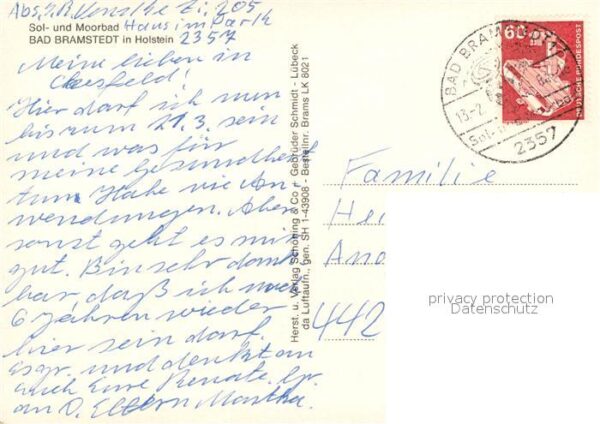 Abs. z. R. Zi. 205
Haus im Park
Sol- und Moorbad
BAD BRAMSTEDT in Holstein
2357
Meine lieben in
Coesfeld!
Hier darf ich nun
bis zum 21.3. sein
und was für
meine Gesundheit
tun. Habe vie An-
wendungen. Aber
sonst geht es mir
gut. Bin sehr dank
bar, daß ich nach
6 Jahren wieder
hier sein darf.
Es gr. und denkt an
euch Eure Renate. Gr.
an D. Eltern Martha.
Herst. u. Verlag Schöning & Co + Gebrüder Schmidt - Lübeck
da Luftaufn., gen. SH 1-43908 - Bestellnr. Brams LK 8021
BAD BRAMSTEDT 1
13.-2.
Sol-u.
2357
60
DEUTSCHE BUNDESPOST
Familie
Hei
Ano
442
privacy protection
Datenschutz